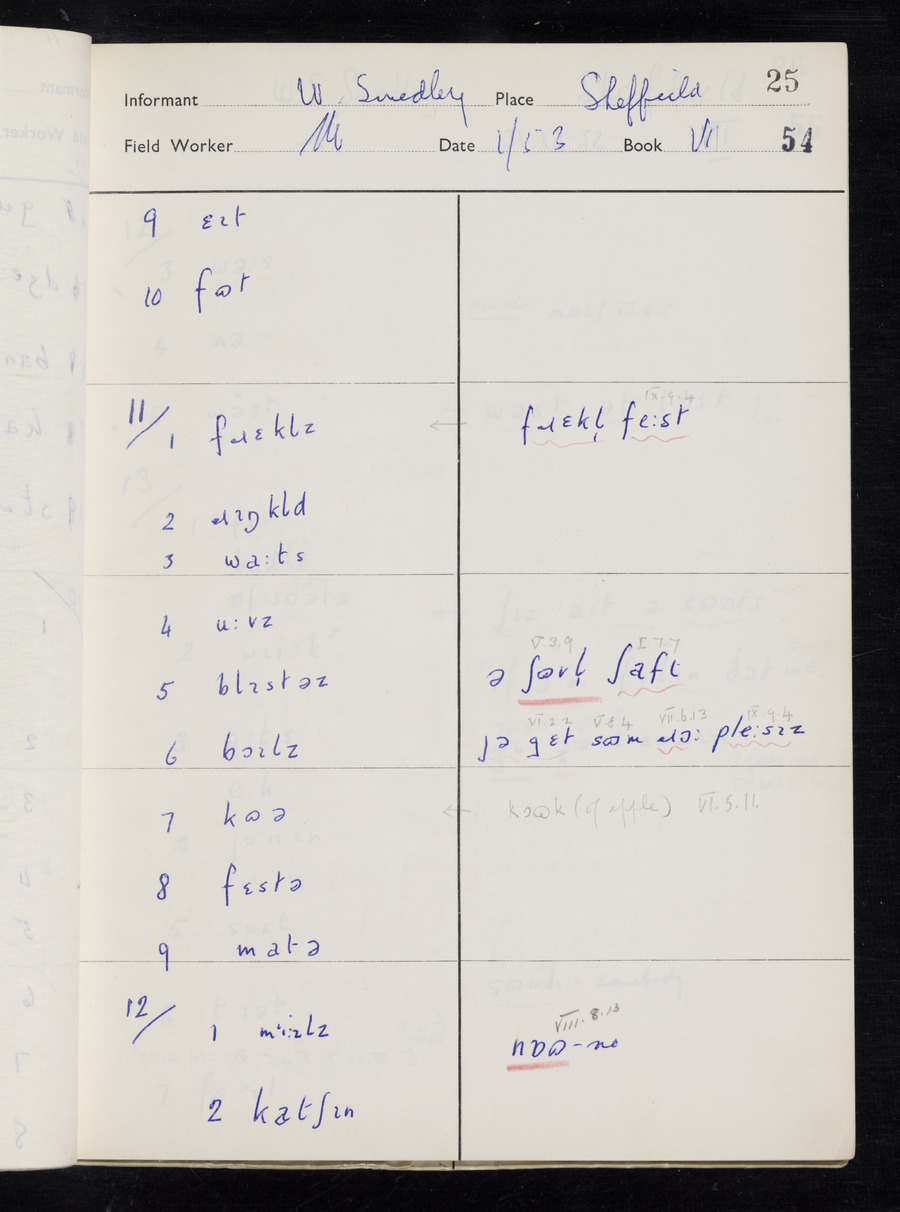 Informant W. Smedley Place Sheffield 25
Field Worker Date 1/5 53 Book VI 54
9 ɛɪt
10 fɷt
11/ 1 fɹɛklz ← fɹɛkl̩ fe:st IX.9.4
2 ɹɪŋkld
3 wa:ts
4 u:vz
V.3.9 I.7.7
5 blɪstəz ə ʃɷvl̩ ʃaft
VI.2.2 V.8.4 VII.6.13 IX.9.4
6 bɔɪlz jə gɛt sɷm ɹɔ: ple:sɪz
7 kɷə ← kɔɷk (of apple) VI.5.11.
8 fɛstə
9 matə
VIII.8.13
12/ 1 mi:zlz nɒɷ - no
2 katʃɪn